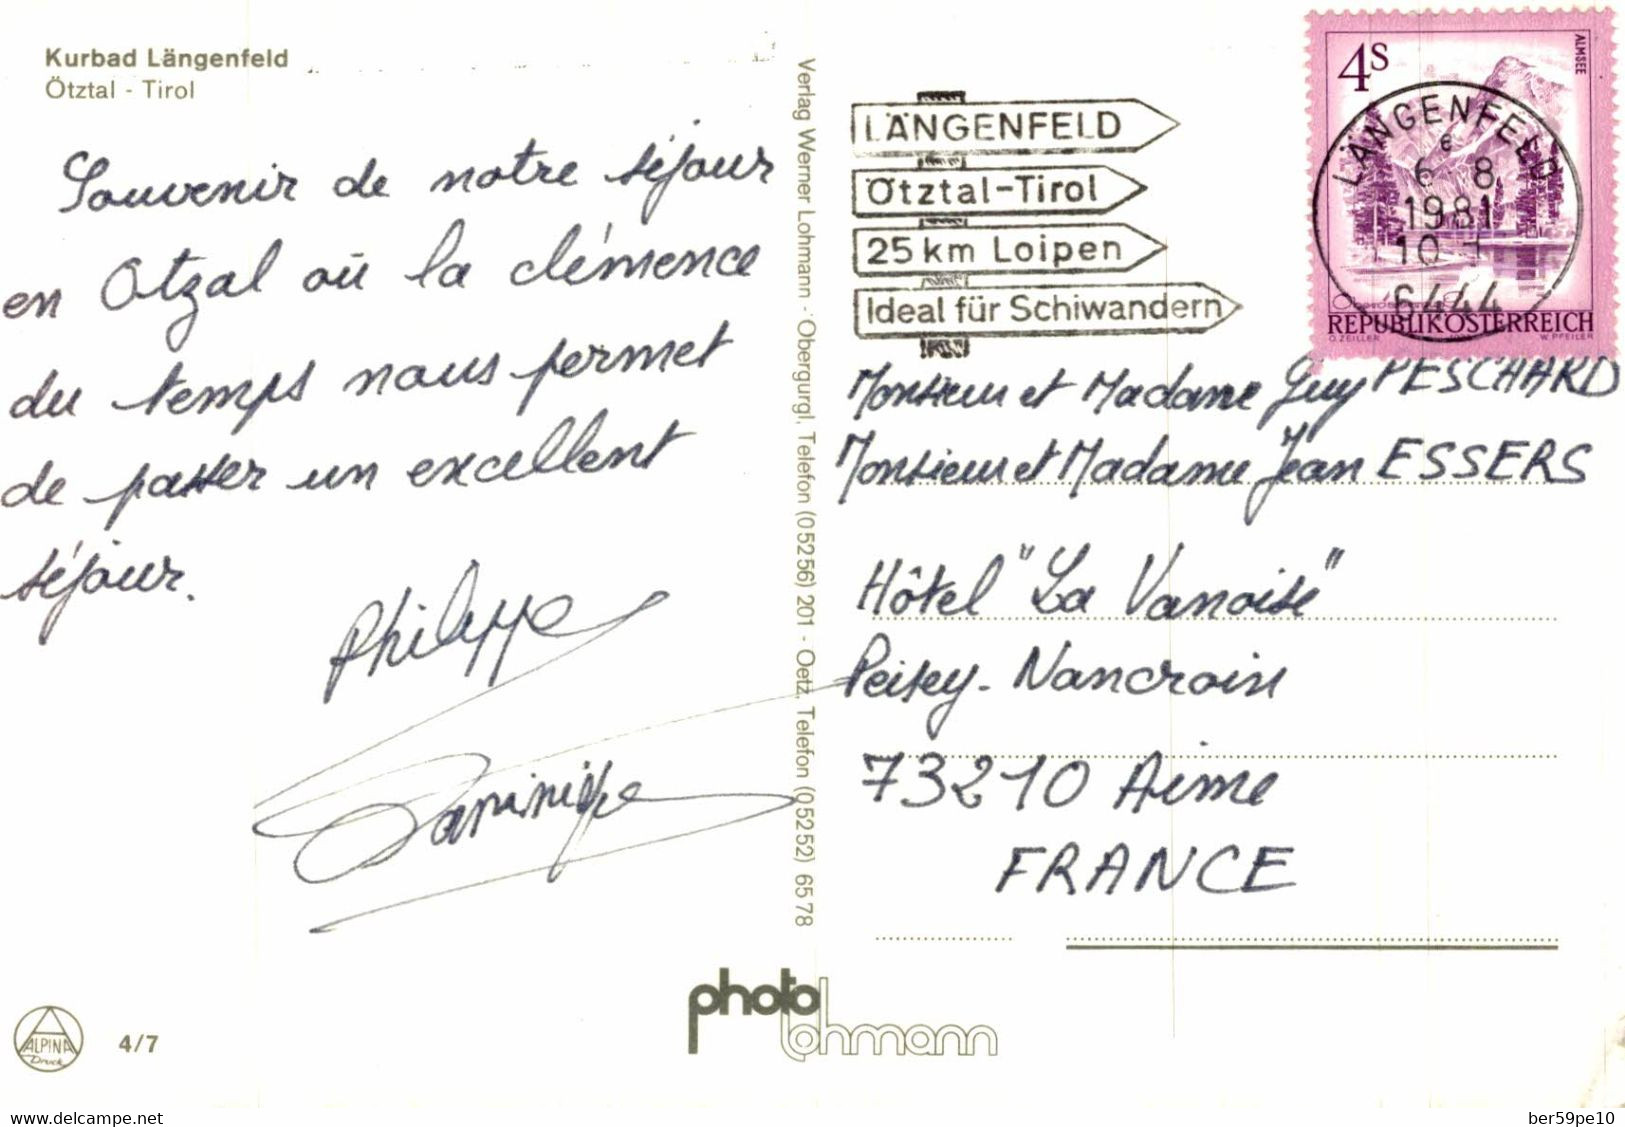 Kurbad Längenfeld
Ötztal - Tirol
Souvenir de notre séjour
en Otzal où la clémence
du temps nous permet
de passer un excellent
séjour.
Philippe
Dominique
ALPINA
Druck
4/7
Verlag Werner Lohmann - Obergurgl, Telefon (05256) 201 - Oetz, Telefon (05252) 6578
photo
lohmann
LÄNGENFELD
Ötztal-Tirol
25 km Loipen
Ideal für Schiwandern
4S
ALMSEE
LÄNGENFELD
e
6 8
1981
10
6444
REPUBLIK ÖSTERREICH
O. ZEILLER
W. PFEILER
Monsieur et Madame Guy PESCHARD
Monsieur et Madame Jean ESSERS
Hôtel "La Vanoise"
Peisey-Nancroix
73210 Aime
FRANCE
www.delcampe.net
ber59pe10